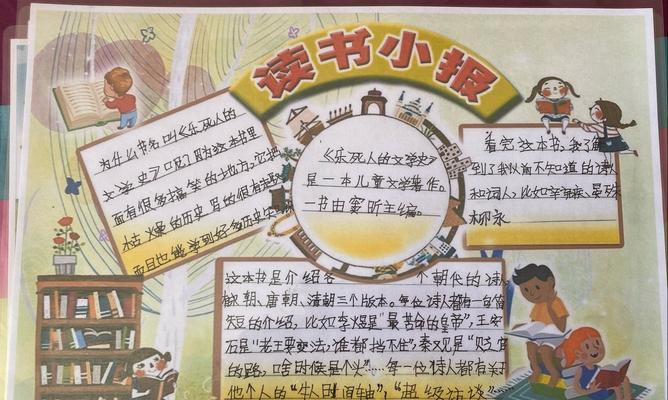 读书小报
为什么书名叫《乐死人的
文学史》呢？因为这本书里
面有很多搞笑的地方。它把
枯燥的历史写的很有趣
而且也能学到好多历史
《乐死人的文学史》
是一本儿童文学著作。
一书由窦昕主编。
看完这本书，我了解
到了我以前不知道的诗人
和词人，比如辛弃疾、晏殊
柳永
这本书是介绍各个朝代的诗人
朝、唐朝、清朝三个版本。每位诗人都有一句简
短的介绍，比如李煜是“最苦命的皇帝”，王安
石是“老王要变法，谁都挡不住”，秦观是“贬官
的路，啥时候是个头”……每一位诗人都有关于
他个人的“人生时间轴”，“超级访谈”